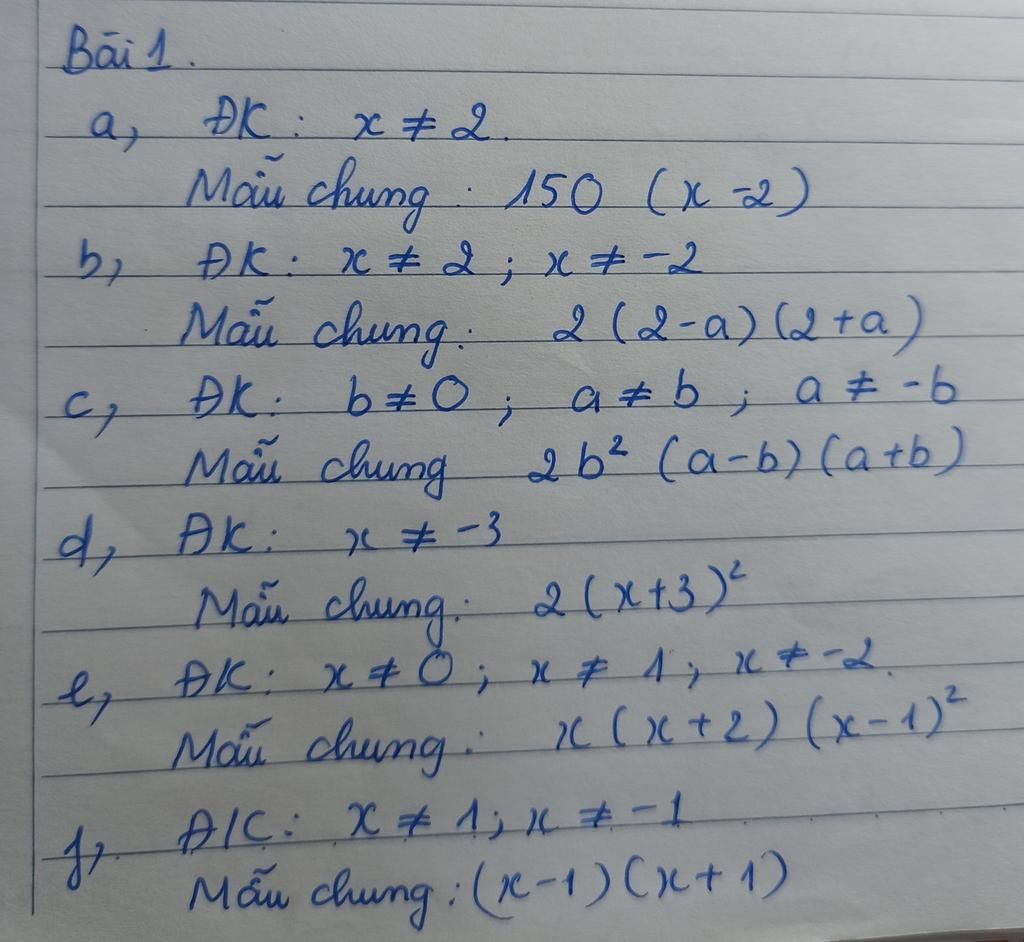 Bài 1.
a, ĐK: x ≠ 2.
Mẫu chung: 150 (x-2)
b, ĐK: x ≠ 2; x ≠ -2
Mẫu chung: 2(2-a)(2+a)
c, ĐK: b ≠ 0; a ≠ b; a ≠ -b
Mẫu chung 2b² (a-b)(a+b)
d, ĐK: x ≠ -3
Mẫu chung: 2(x+3)²
e, ĐK: x ≠ 0; x ≠ 1; x ≠ -2.
Mẫu chung: x(x+2)(x-1)²
f, ĐK: x ≠ 1; x ≠ -1
Mẫu chung: (x-1)(x+1)